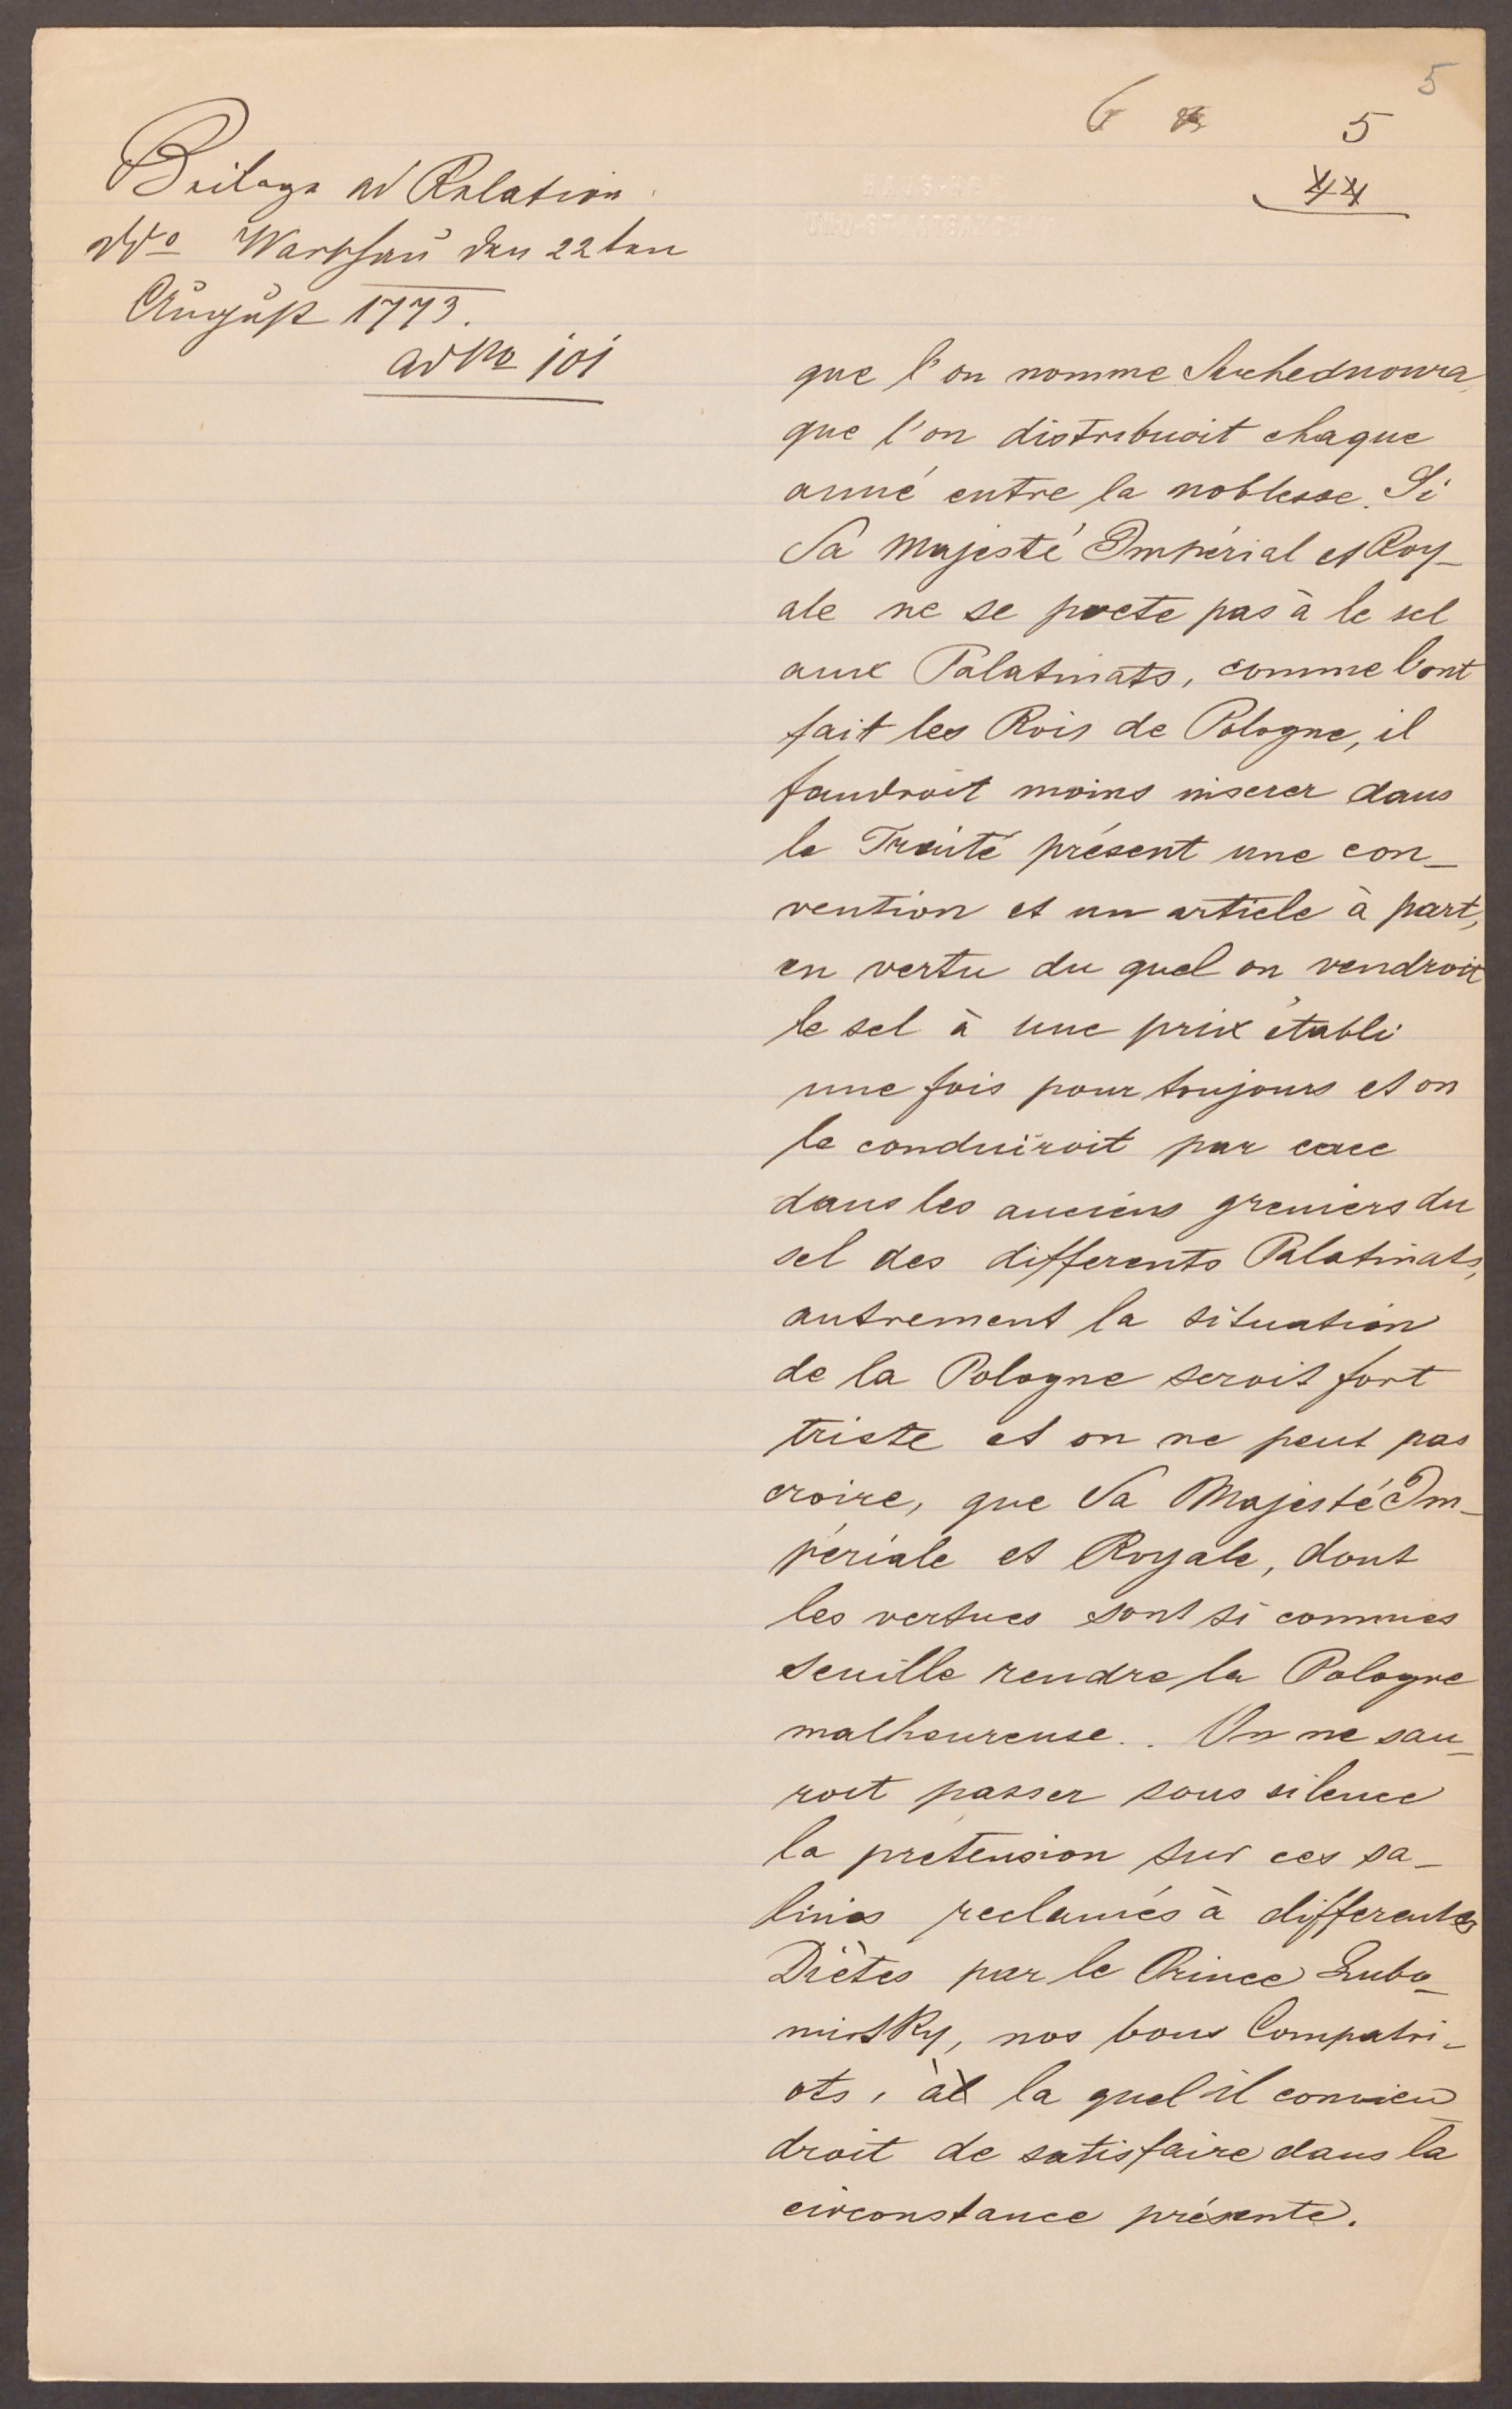 5
6
5
44
Beilage ad Relation
ddo Warschau den 22ten
August 1773.
ad No 101
que l'on nomme Suchednowa
que l'on distribuoit chaque
anné entre la noblesse. Si
Sa Majesté Impérial et Roy-
ale ne se prete pas à le sel
aux Palatinats, comme l'ont
fait les Rois de Pologne, il
faudroit moins inserer dans
le Traité présent une con-
vention et un article à part,
en vertu du quel on vendroit
le sel à une prix établi
une fois pour toujours et on
le conduiroit par
dans les anciens greniers du
sel des differents Palatinats,
autrement la situation
de la Pologne seroit fort
triste et on ne peut pas
croire, que Sa Majesté Im-
périale et Royale, dont
les vertues sont si connues
seuille rendre la Pologne
malheureuse.. On ne sau-
roit passer sous silence
la pretension sur ces sa-
lines reclamés à differentes
Diètes par le Prince Lubo-
mirsky, nos bons Compatri-
ots, à la quel il convien
droit de satisfaire dans la
circonstance présente.